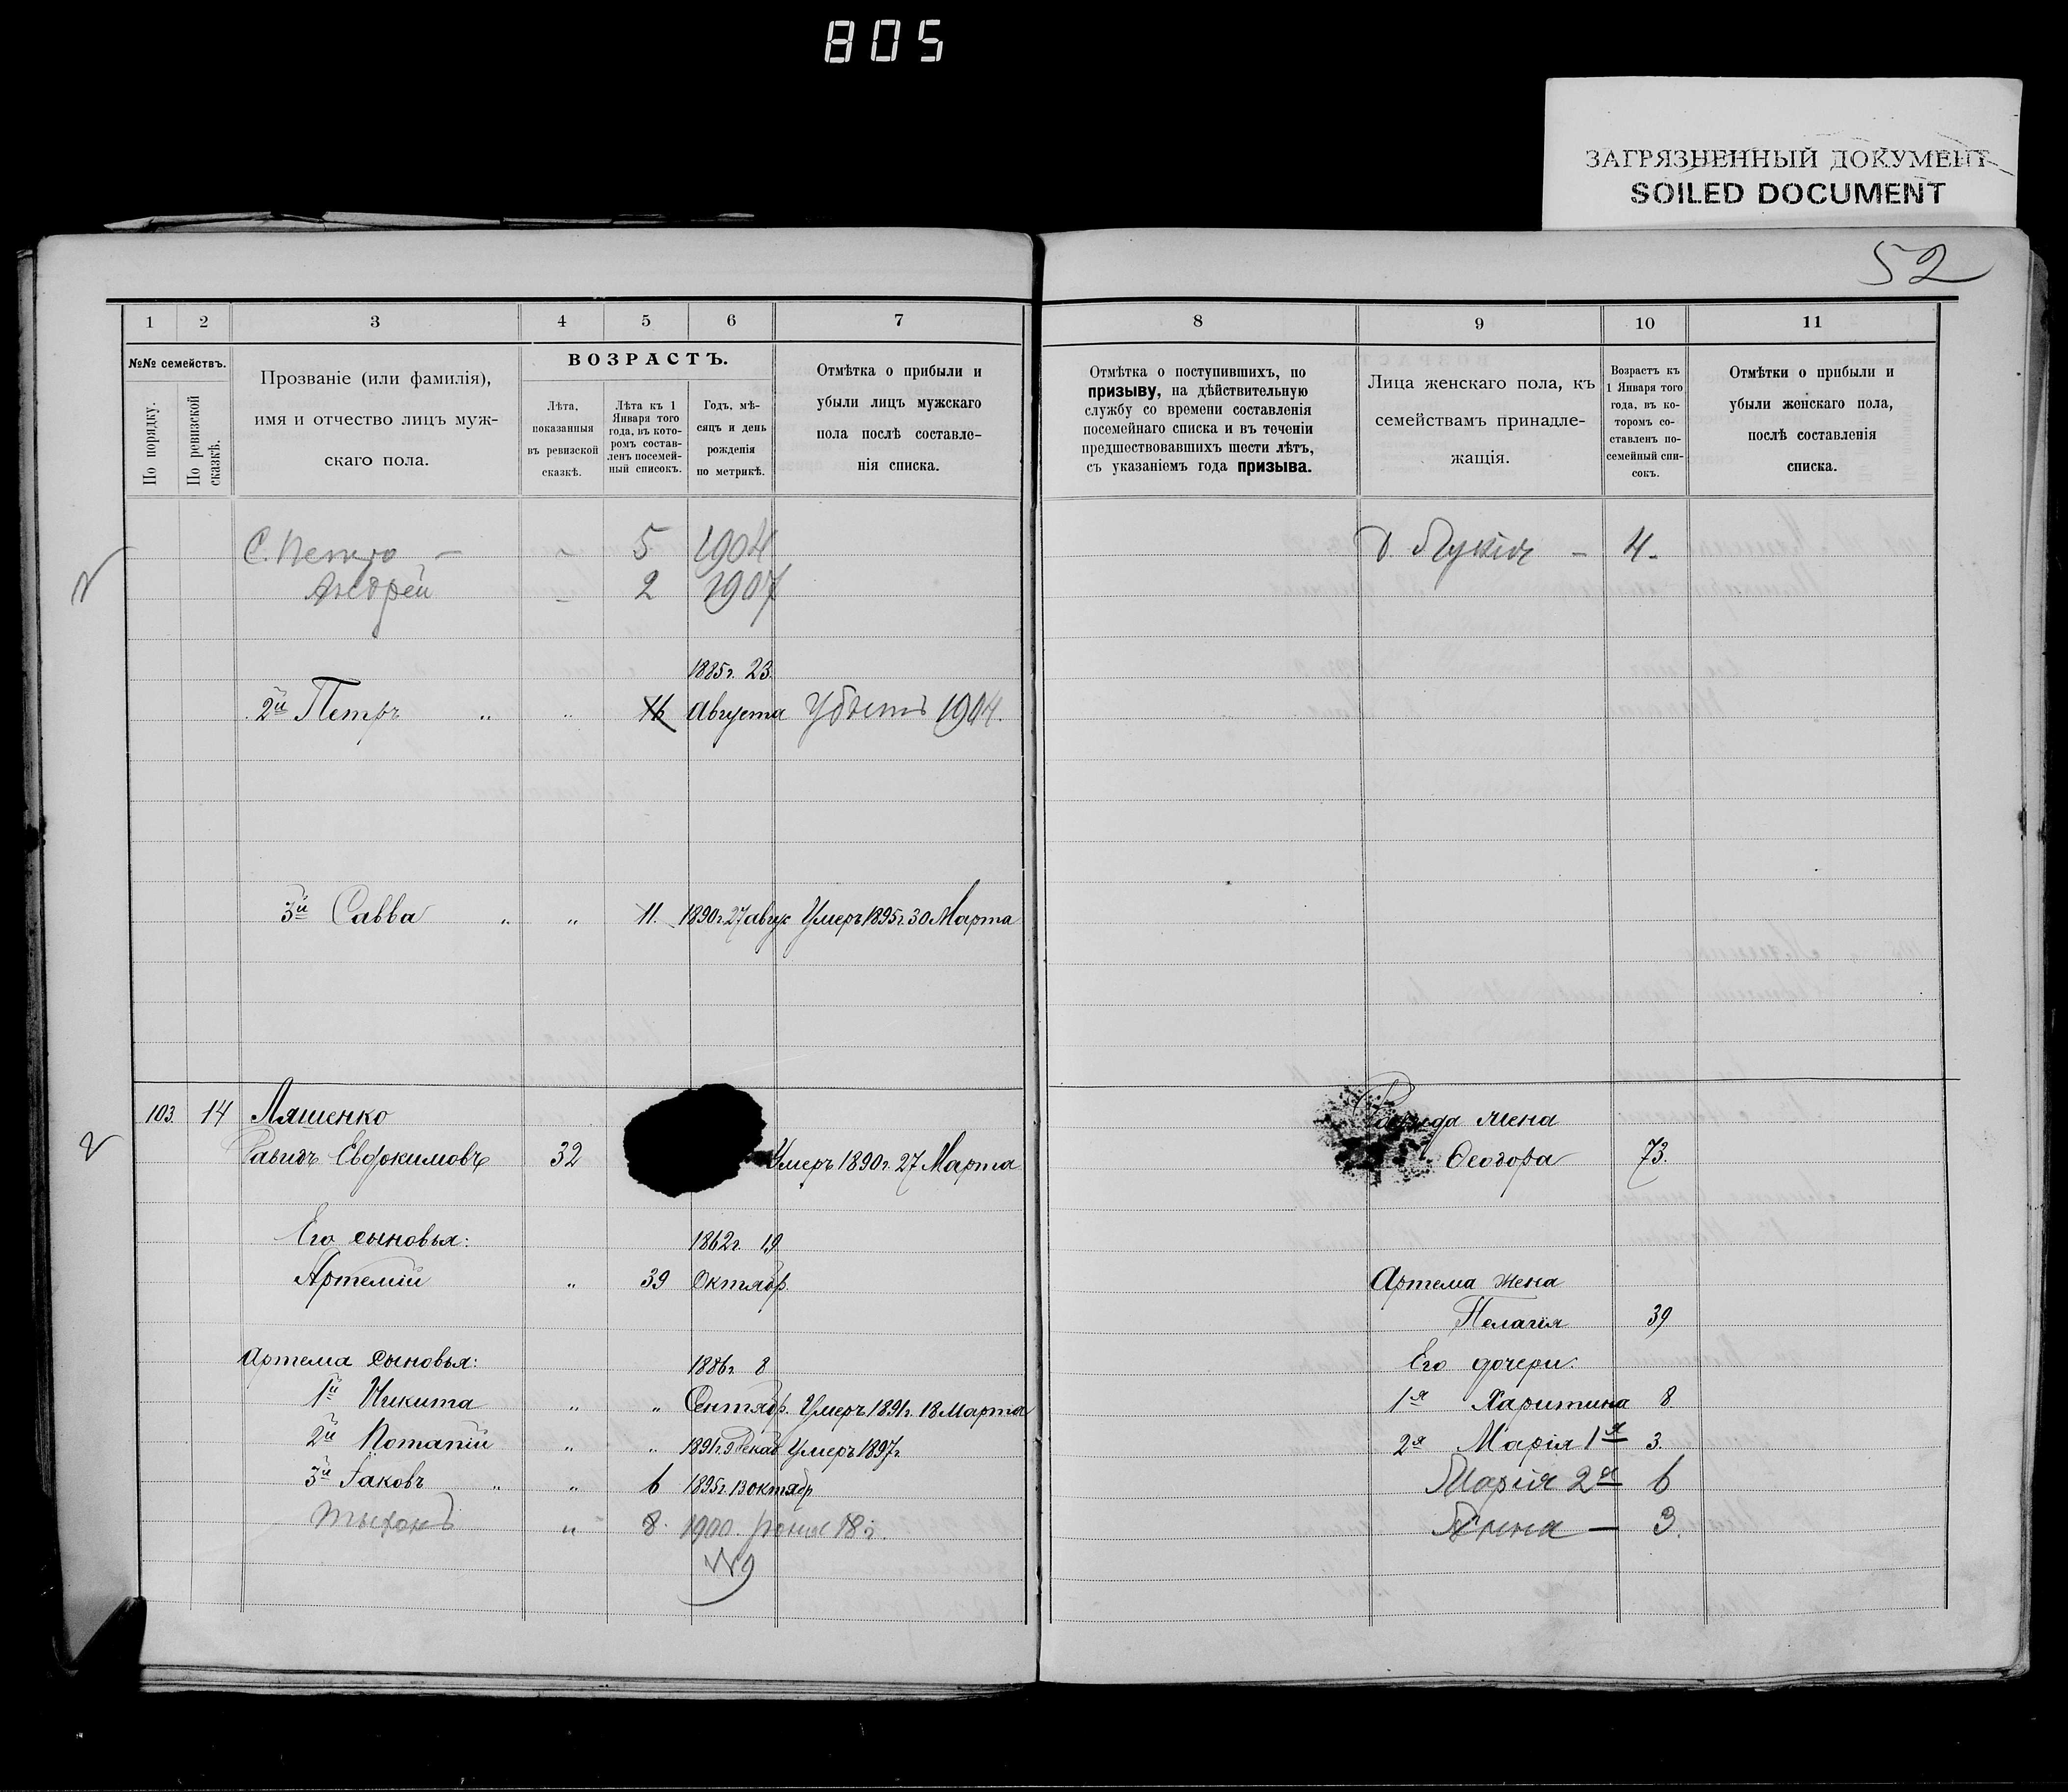 805
ЗАГРЯЗНЕННЫЙ ДОКУМЕНТ
SOILED DOCUMENT
52
1 2 3 4 5 6 7
№№ семействъ.
По порядку.
По ревизской сказкѣ.
Прозваніе (или фамилія),
имя и отчество лицъ муж-
скаго пола.
ВОЗРАСТЪ.
Лѣта,
показанныя
въ ревизской
сказкѣ.
Лѣта къ 1
Января того
года, въ кото-
ромъ состав-
ленъ посемей-
ный списокъ.
Годъ, мѣ-
сяцъ и день
рожденія
по метрикѣ.
Отмѣтка о прибыли и
убыли лицъ мужскаго
пола послѣ составле-
нія списка.
С. Петро — 5 1904
Андрей 2 1907
1885г. 23.
2й Петръ " " 16 Августа Убытъ 1904.
3й Савва " " 11. 1890г. 27 авгус Умеръ 1895г. 30 Марта
103. 14 Ляшенко
Давидъ Евдокимовъ 32 Умеръ 1890г. 27 Марта
Его сыновья: 1862г. 19
Артемій " 39 Октябр.
Артема сыновья: 1886г. 8
1й Никита " " Сентябр. Умеръ 1891г. 18 Марта
2й Потапій " " 1891г. 9 Декаб. Умеръ 1897г.
3й Іаковъ " " 6 1895г. 13 октябр
Тыхонъ " 8. 1900. 18
8 9 10 11
Отмѣтка о поступившихъ, по
призыву, на дѣйствительную
службу со времени составленія
посемейнаго списка и въ теченіи
предшествовавшихъ шести лѣтъ,
съ указаніемъ года призыва.
Лица женскаго пола, къ
семействамъ принадле-
жащія.
Возрастъ къ
1 Января того
года, въ ко-
торомъ со-
ставленъ по-
семейный спи-
сокъ.
Отмѣтки о прибыли и
убыли женскаго пола,
послѣ составленія
списка.
Д. – 4.
Давида жена
Ѳеодора 73.
Артема жена
Пелагія 39
Его дочери:
1я Харитина 8
2я Марія 1я 3.
Марія 2я 6
— 3.